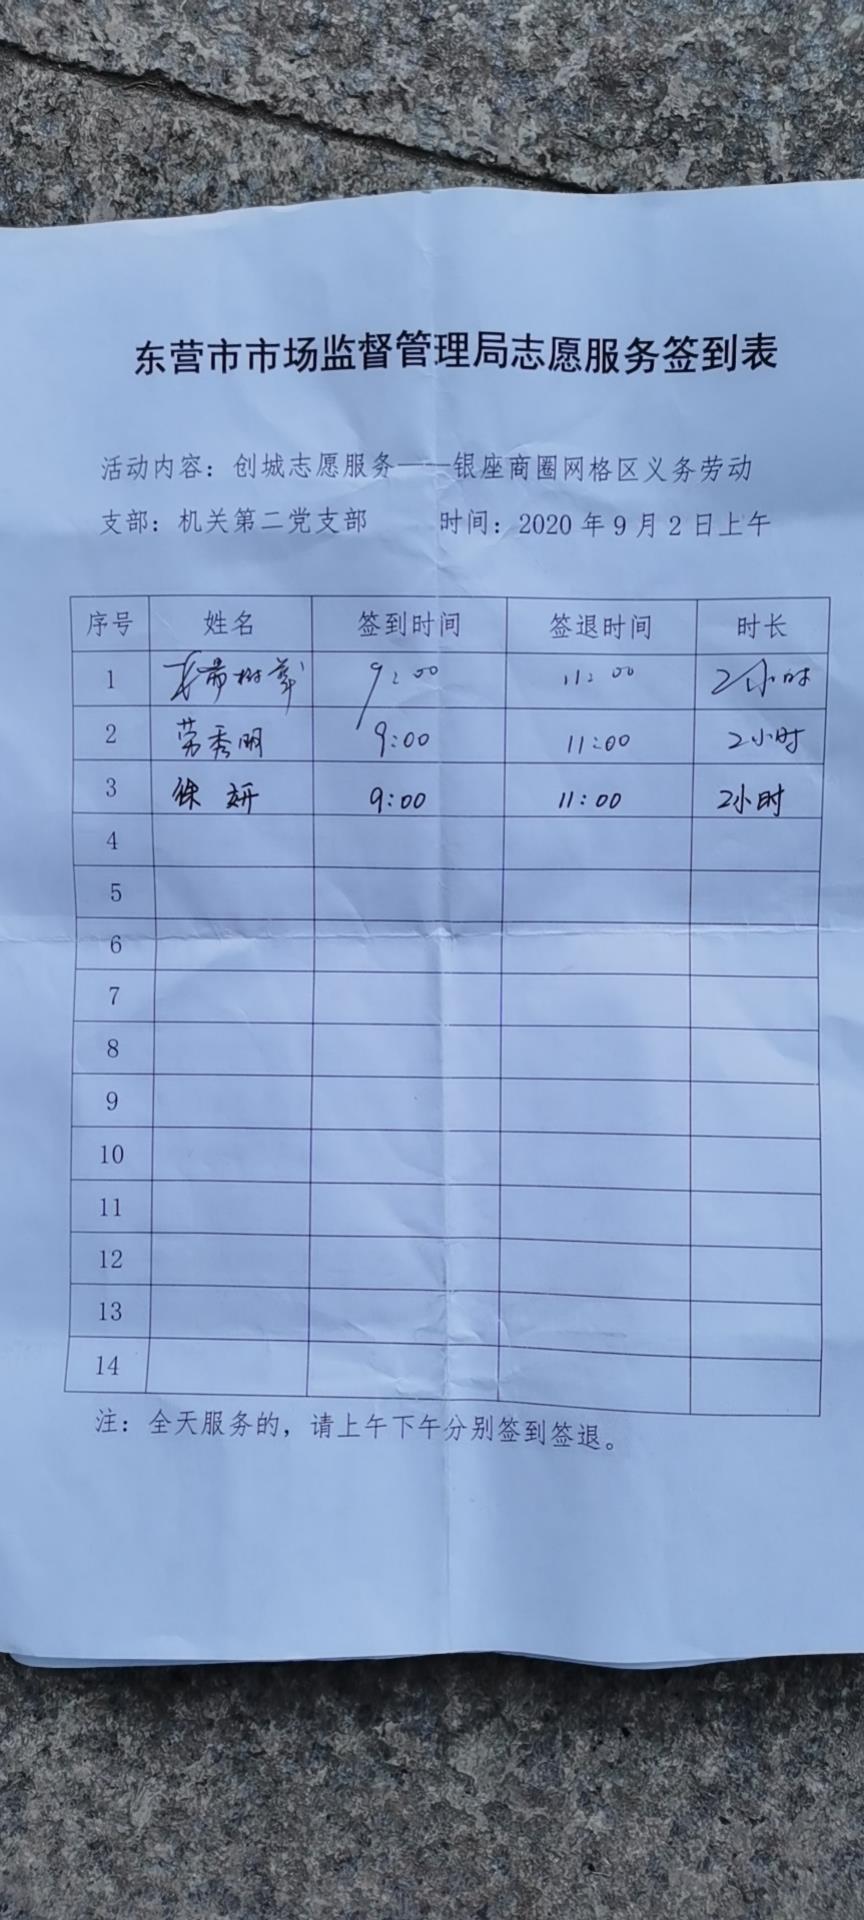 东营市市场监督管理局志愿服务签到表
活动内容：创城志愿服务——银座商圈网格区义务劳动
支部：机关第二党支部 时间：2020年9月2日上午
序号 姓名 签到时间 签退时间 时长
1 9:00 11:00 2小时
2 劳秀明 9:00 11:00 2小时
3 徐妍 9:00 11:00 2小时
4
5
6
7
8
9
10
11
12
13
14
注：全天服务的，请上午下午分别签到签退。